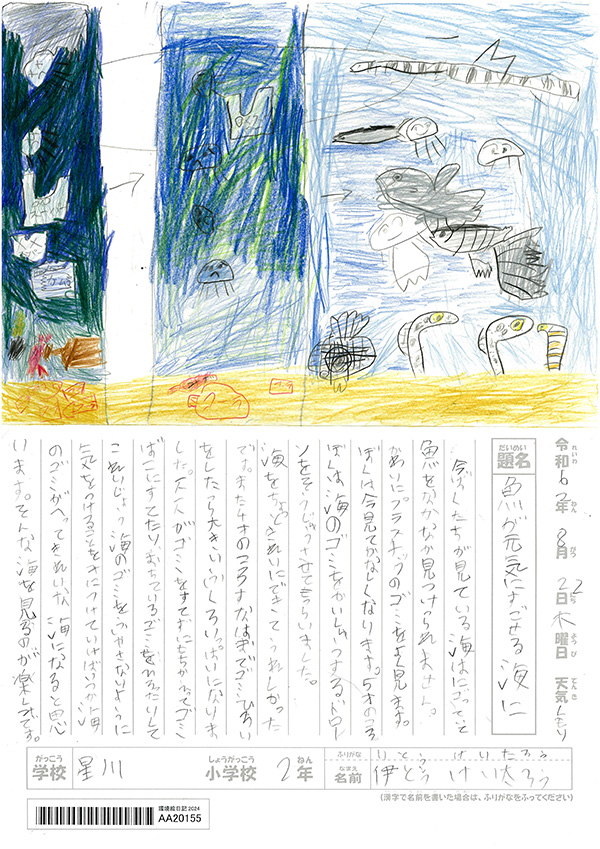 令和6年8月22日木曜日 天気くもり
れいわ ねん がつ にち ようび てんき
だいめい
題名 魚が元気にすごせる海に
今ぼくたちが見ている海はにごって
魚をなかなか見つけられません。
かわりにプラスチックのゴミをよく見ます。
ぼくは今見てかなしくなります。5才のころ
ぼくは海のゴミをかいしゅうするドロー
ンをそうじゅうさせてもらいました。
海をちょっときれいにできてうれしかった
です。また4才のころすなはまでゴミひろい
をしたら大きいふくろいっぱいになりま
した。大人がゴミをすてずにもちかえってゴミ
ばこにすてたり、おちているゴミをひろったりして
これいじょう海のゴミをふやさないように
気をつけることを につけていけばいつか海
のゴミがへってきれいな海になると思
います。そんな海を見るのが楽しみです。
がっこう しょうがっこう ねん ふりがな いとう けいたろう
学校 星川 小学校 2年 なまえ 名前 伊とう けい太ろう
(漢字で名前を書いた場合は、ふりがなをふってください)
環境絵日記2024
AA20155